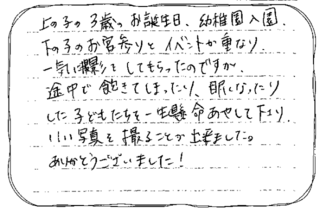 上の子の3歳のお誕生日、幼稚園入園、
下の子のお宮参りとイベントが重なり、
一気に撮影をしてもらったのですが、
途中で飽きてしまったり、眠くなったり
した子どもたちを一生懸命あやして下さり、
いい写真を撮ることが出来ました。
ありがとうございました!